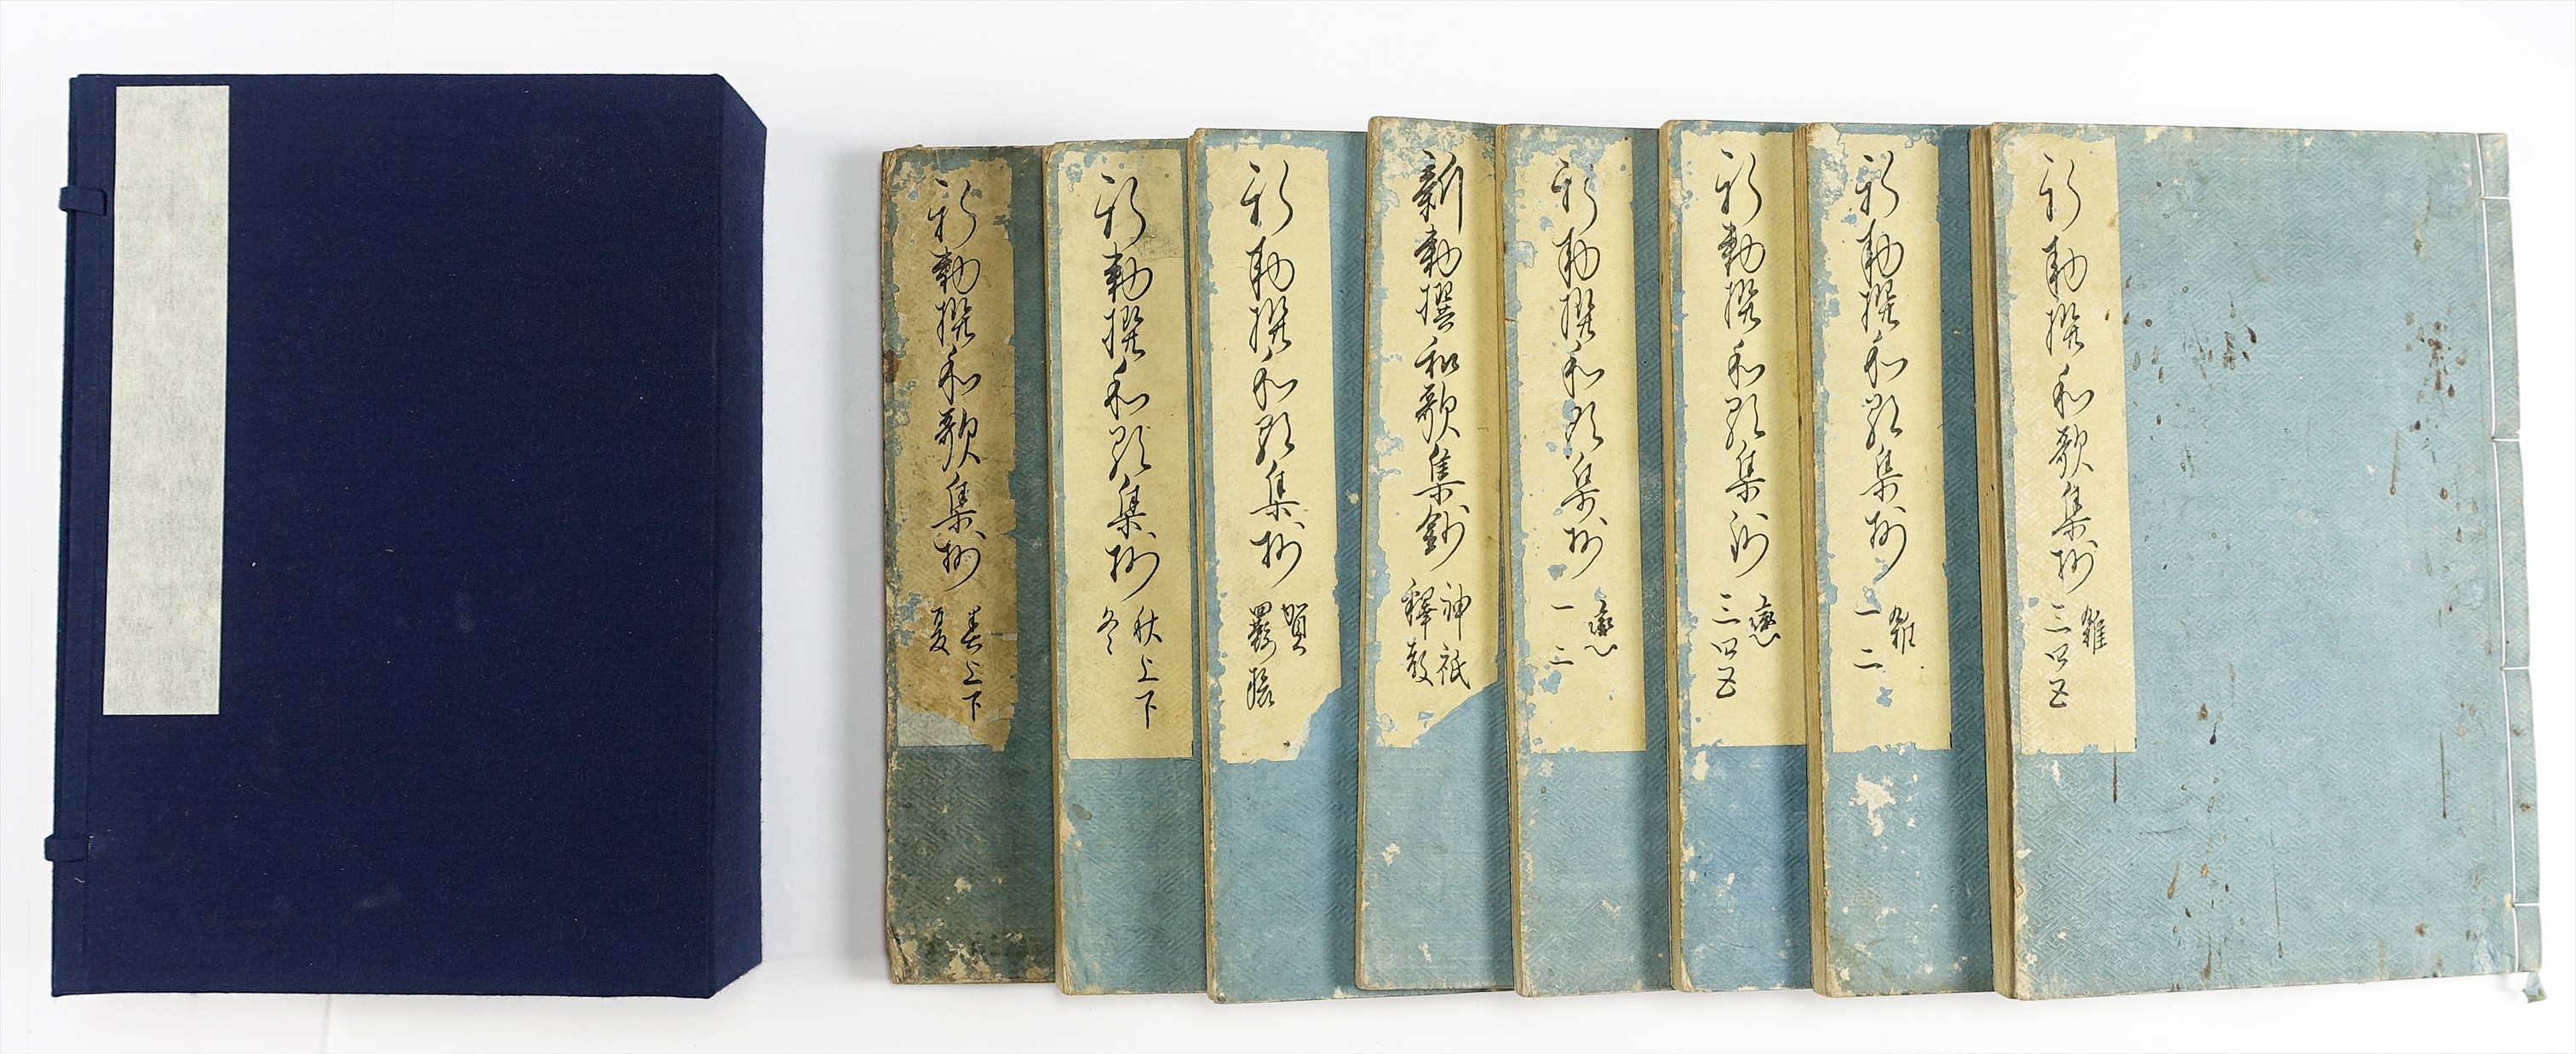 新勅撰和歌集抄 春上下
夏
新勅撰和歌集抄 秋上下
冬
新勅撰和歌集抄 賀
羇旅
新勅撰和歌集鈔 神祇
釋教
新勅撰和歌集抄 戀
一二
新勅撰和歌集鈔 戀
三四五
新勅撰和歌集抄 雜
一二
新勅撰和歌集抄 雜
三四五